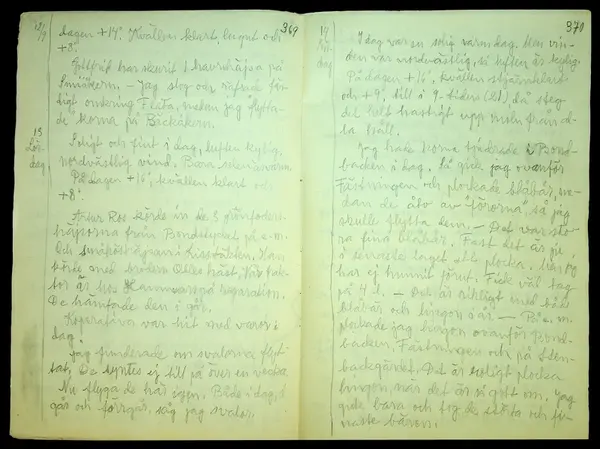 12/9
369
dagen +14°. Kvällen klart, lugnt och
+8°.
Gottfrid har skurit 1 havrehässja på
Smiåkern. – Jag slog och räfsade fär-
digt omkring Festa, medan jag flytta-
de korna på Bäckåkern.
13
Lör
dag.
Soligt och fint i dag, luften kylig,
nordvästlig vind. Bara
På dagen +16°, kvällen klart och
+8°.
Artur Ros körde in de 3 grönfoder-
hässjorna från Bondstycket på e.m.
Och småkösträngarn i
körde med brodern Olles häst. Vår trak-
tor är hos reparation.
De hämtade den i går.
Koperativa var hit med varor i
dag.
Jag funderade om svalorna flyt-
tat. De syntes ej till på över en vecka.
Nu flyga de här igen. Både i dag, i
går och förrgår, såg jag svalor.
14
Sön
dag
370
I dag var en solig varm dag. Men vin-
den var nordvästlig, så luften är kylig.
På dagen +16°, kvällen stjärnklart
och +9°, till 9-tiden (kl) då steg
det helt hastigt upp moln från al-
la håll.
Jag hade korna tjudrade i Bond-
backen i dag. Så gick jag ovanför
Fästningen och plockade blåbär, me-
dan de åto av "förorna" så jag
skulle flytta dem. – Det var sto-
ra fina blåbär. Fast det är ju
i senaste laget att plocka. Men jag
har ej hunnit förut. Fick väl tag
på 4 l. – Det är riktigt med både
blåbär och lingon i år – På e.m.
plockade jag lingon ovanför Bond-
backen, Fästningen och på Sten-
backgärdet. Det är roligt plocka
lingon när det är så gott om. Jag
gick bara och tog de största och fi-
naste bären.